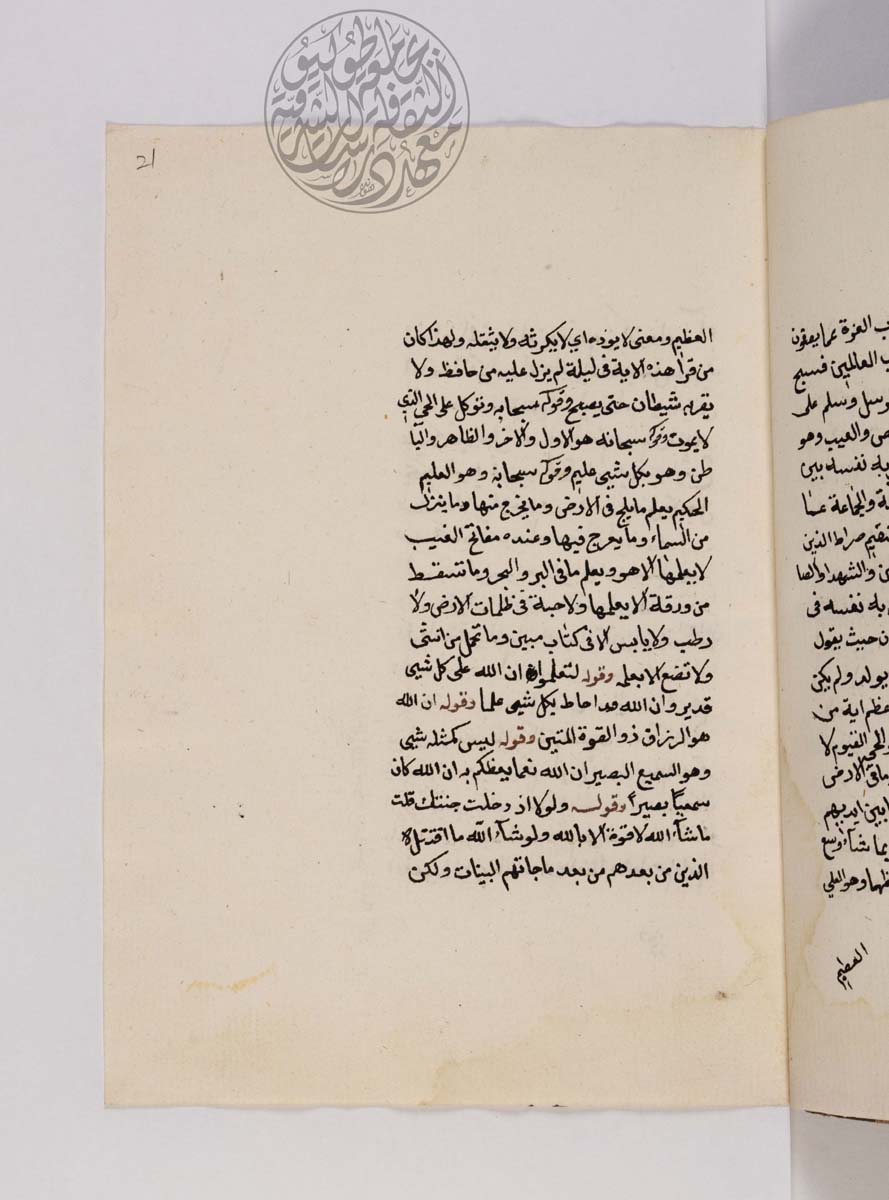 21
العظيم ومعنى لا يوده اي لا يكرثه ولا يثقله ولهذا كان
من قرا هذه الاية في ليلة لم يزل عليه من حافظ ولا
يقربه شيطان حتى يصبح وقوله سبحانه وتوكل على الحي الذي
لا يموت وقوله سبحانه هو الاول والاخر والظاهر والبا
طن وهو بكل شيى عليم وقوله سبحانه وهو العليم
الحكيم يعلم ما يلج في الارض وما يخرج منها وما ينزل
من السماء وما يعرج فيها وعنده مفاتح الغيب
لا يعلمها الا هو ويعلم ما في البر والبحر وما تسقط
من ورقة الا يعلمها ولا حبة في ظلمات الارض ولا
رطب ولا يابس الا في كتاب مبين وما تحمل من انثى
ولا تضع الا بعلمه وقوله لتعلموا ان الله على كل شيى
قدير وان الله قد احاط بكل شيى علما وقوله ان الله
هو الرزاق ذو القوة المتين وقوله ليس كمثله شيى
وهو السميع البصير ان الله نعما يعظكم به ان الله كان
سميعا بصيرا وقوله ولولا اذ دخلت جنتك قلت
ما شاء الله لا قوة الا بالله ولو شاء الله ما اقتتل
الذين من بعدهم من بعد ما جاتهم البينات ولكن
ب العزة عما يصفون
ب العالمين فسبح
وسلم على
والعيب وهو
به نفسه بين
والجماعة عما
صراط الذين
والشهدا والصا
به نفسه في
حيث يقول
يولد ولم يكن
اية من
الحي القيوم لا
الارض
بين ايديهم
بما شاء وسع
وهو العلي
العظيم